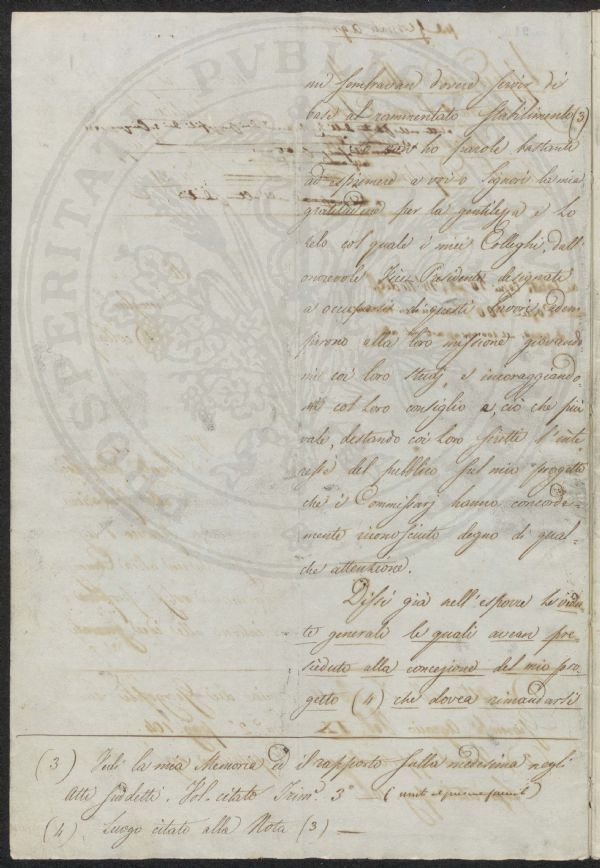 mi sembravan dovere servir di
base al rammentato Stabilimento (3)
ho parole bastanti
ad esprimere a voi o Signori la mia
gratitudine per la gentilezza e lo
zelo col quale i miei Colleghi, dall'
onorevole Vice-Presidente designati
a occuparsi di questi lavori adem-
pirono alla loro missione giovando
mi coi loro studj, e incoraggiando-
mi col loro consiglio e, ciò che più
vale, destando coi loro scritti l'inte
resse del pubblico sul mio progetto
che i Commissarj hanno concorde-
mente riconosciuto degno di qual-
che attenzione.
Dissi già nell'esporre le vedu
te generali le quali avean pre-
sieduto alla concezione del mio pro
getto (4) che dovea rimandarsi
(3) Vedi la mia Memoria ed il rapporto sulla medesima negli
Atti suddetti. Vol. citato Trim.e 3°
(4) Luogo citato alla Nota (3) —
PROSPERITATI PUBLICAE